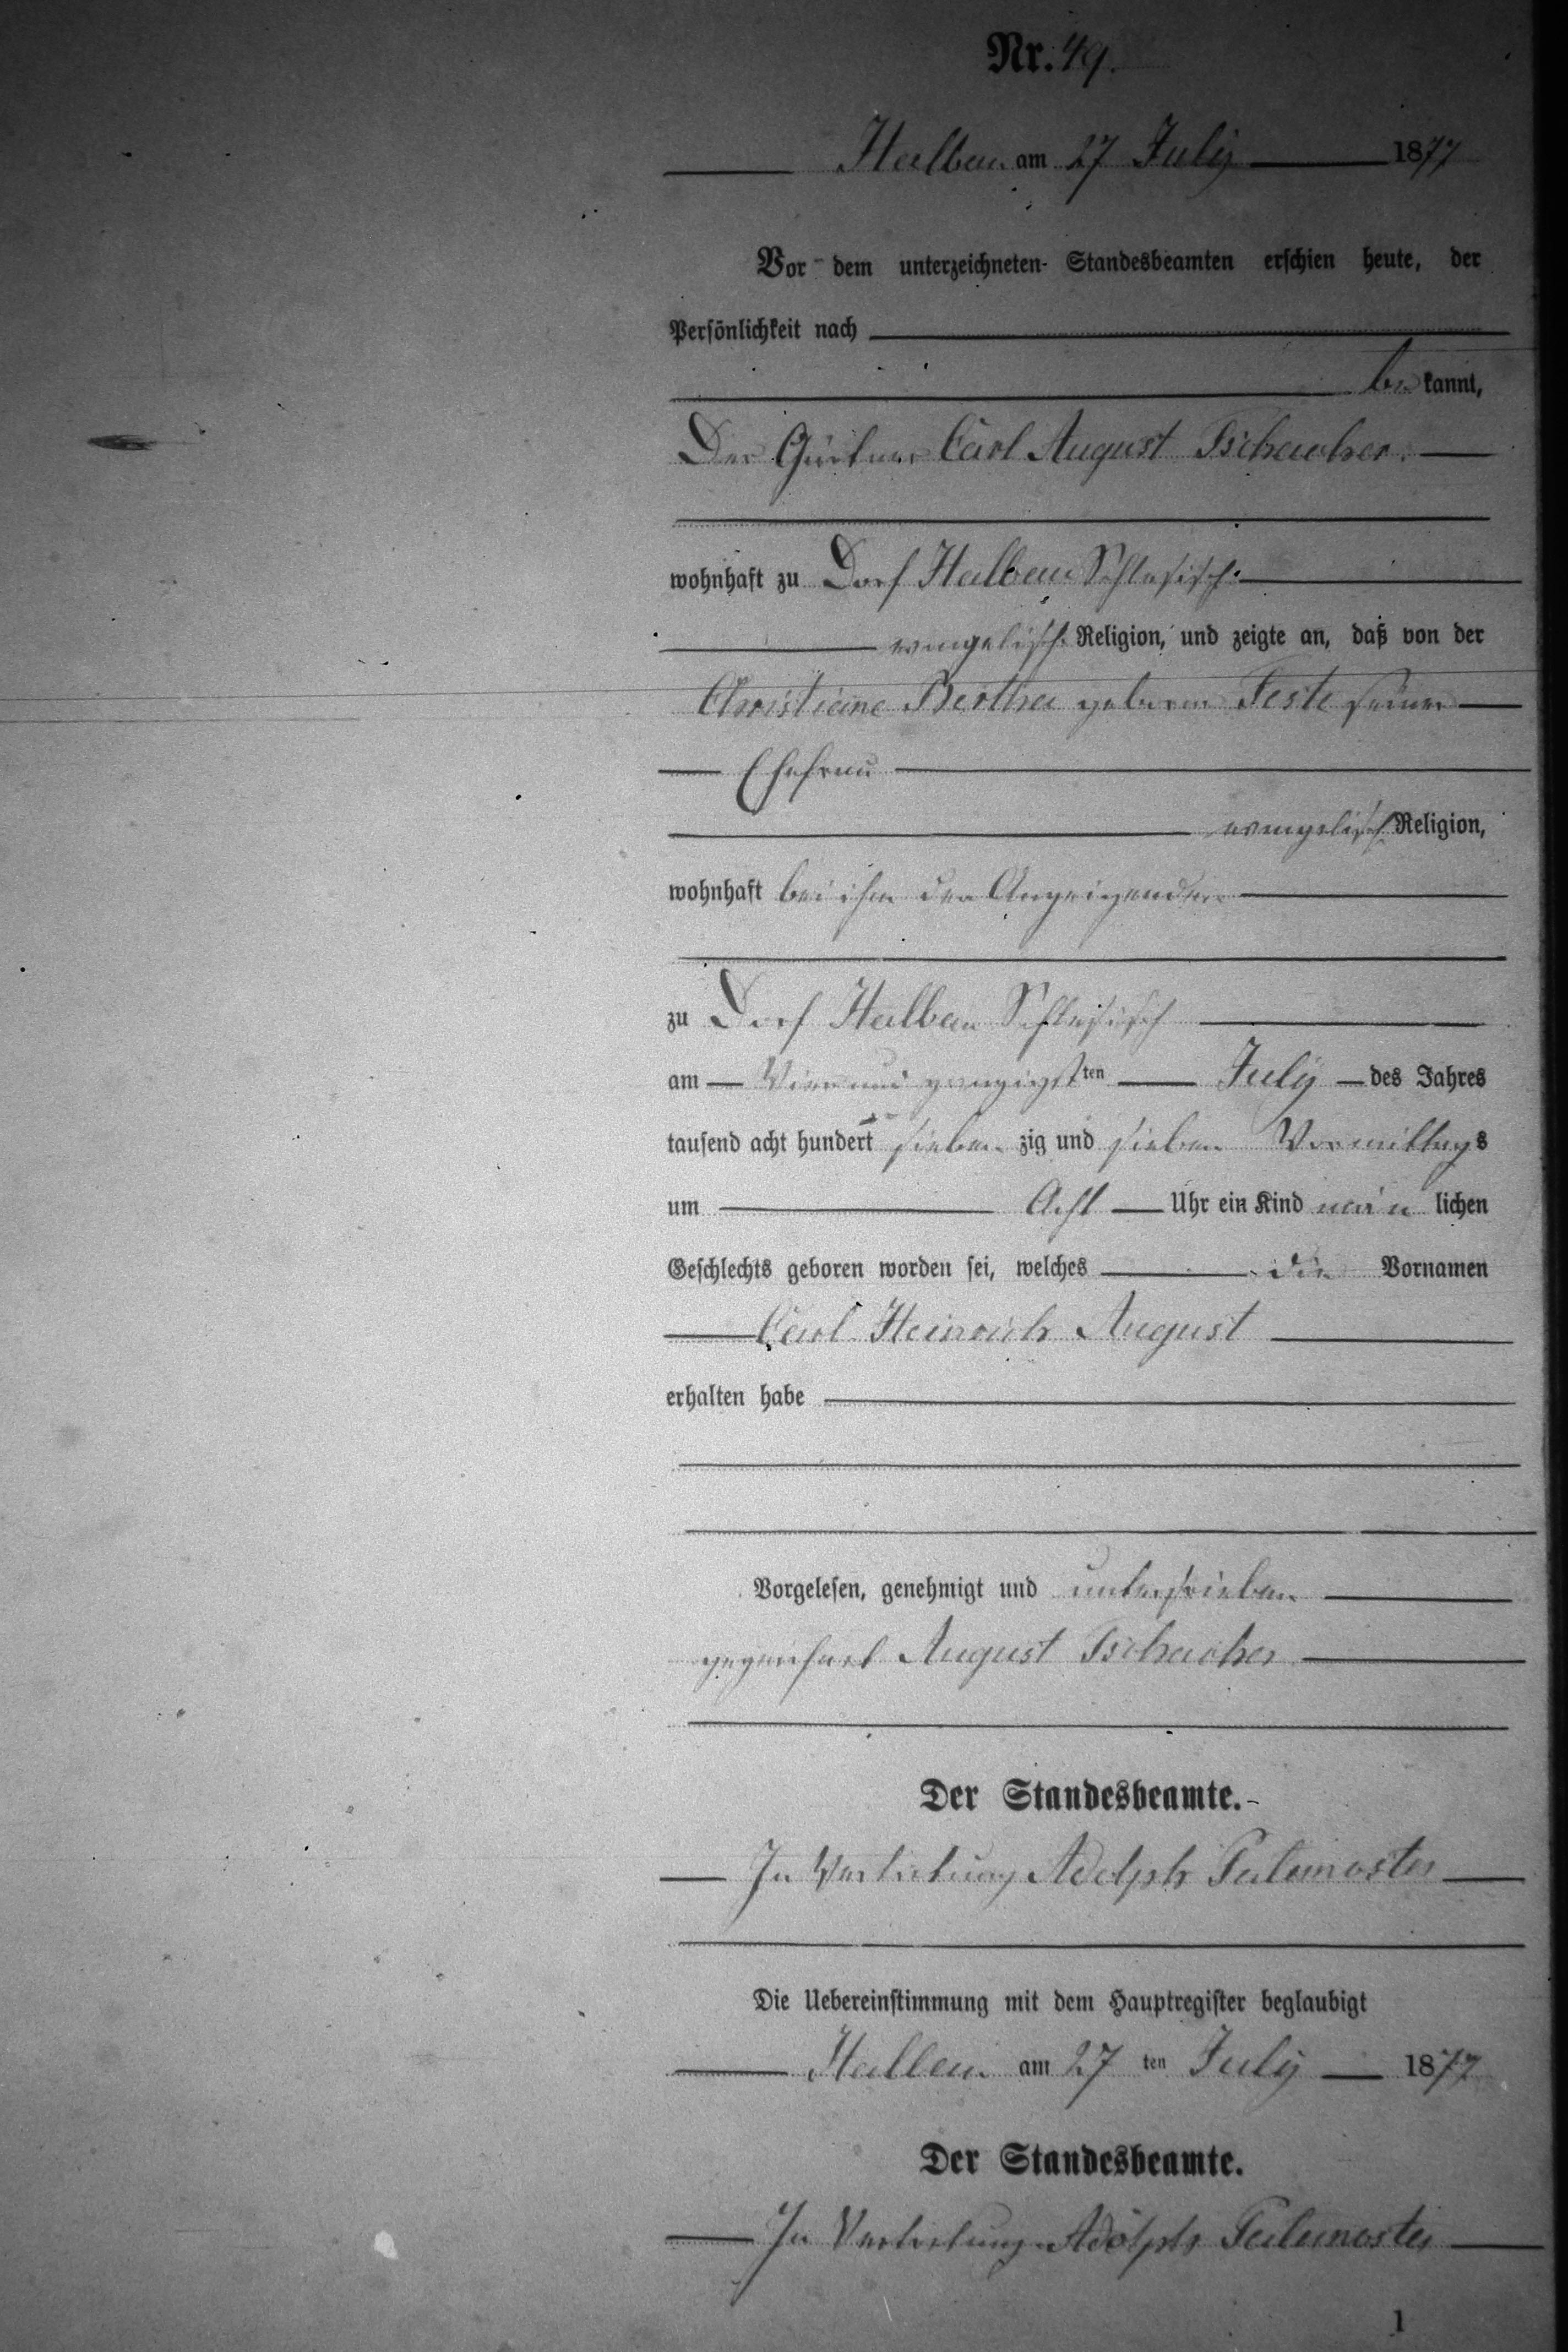 Nr. 49.
Halbau am 27 July 1877
Vor dem unterzeichneten Standesbeamten erschien heute, der
Persönlichkeit nach
be kannt,
Der Gärtner Carl August Tschacher.
wohnhaft zu Dorf Halbau Schlesisch.
evangelisch Religion, und zeigte an, daß von der
Christiane Bertha geboren Feste seiner
Ehefrau
evangelisch Religion,
wohnhaft bei ihm den Anzeigenden
zu Dorf Halbau Schlesisch
am Vier und zwanzigsten July des Jahres
tausend acht hundert sieben zig und sieben Vormittags
um Acht Uhr ein Kind män lichen
Geschlechts geboren worden sei, welches die Vornamen
Carl Heinrich August
erhalten habe
Vorgelesen, genehmigt und unterschrieben
gezeichnet August Tschacher
Der Standesbeamte.
In Vertretung Adolph
Die Uebereinstimmung mit dem Hauptregister beglaubigt
Halbau am 27 ten July 1877
Der Standesbeamte.
In Vertretung Adolph
1